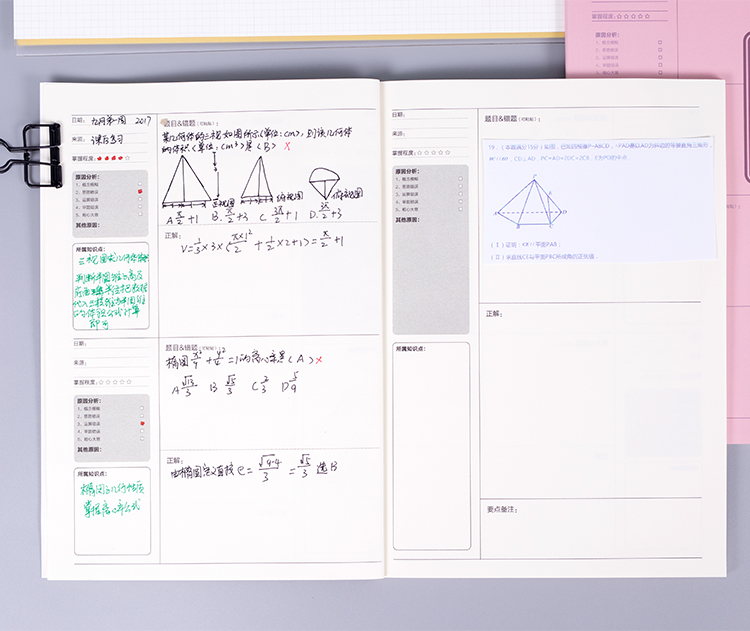 日期: 九月第一周 2017
来源: 课后复习
掌握程度:
原因分析:
1、概念模糊
2、思路错误
3、运算错误
4、审题错误
5、粗心大意
其他原因:
所属知识点:
题目&错题(可粘贴):
某几何体的三视图如图所示(单位:cm),则该几何体
的体积(单位:cm³)是(B) ×
正视图
俯视图
A. π/2+1 B. π/2+3 C. 3π/2+1 D. 3π/2+3
正解:
V=1/3×3×(π×1²/2+1/2×2×1)=π/2+1
日期:
来源:
掌握程度:☆☆☆☆☆
原因分析:
1、概念模糊
2、思路错误
3、运算错误
4、审题错误
5、粗心大意
其他原因:
所属知识点:
椭圆的几何性质
掌握离心率公式
题目&错题(可粘贴):
椭圆x²/9+y²/4=1的离心率是(A)×
A √13/3 B √5/3 C 2/3 D 5/9
正解:
由椭圆定义直接e=√9-4/3=√5/3 选B
日期:
来源:
掌握程度:☆☆☆☆☆
原因分析:
1、概念模糊
2、思路错误
3、运算错误
4、审题错误
5、粗心大意
其他原因:
所属知识点:
题目&错题(可粘贴):
19.(本题满分15分)如图,已知四棱锥P-ABCD,△PAD是以AD为斜边的等腰直角三角形,
BC∥AD,CD⊥AD,PC=AD=2DC=2CB,E为PD的中点.
P
E
A
D
B
C
(Ⅰ)证明:CE∥平面PAB;
(Ⅱ)求直线CE与平面PBC所成角的正弦值.
正解:
要点备注:
掌握程度:☆☆☆☆☆
原因分析:
1、概念模糊
2、思路错误
3、运算错误
4、审题错误
5、粗心大意